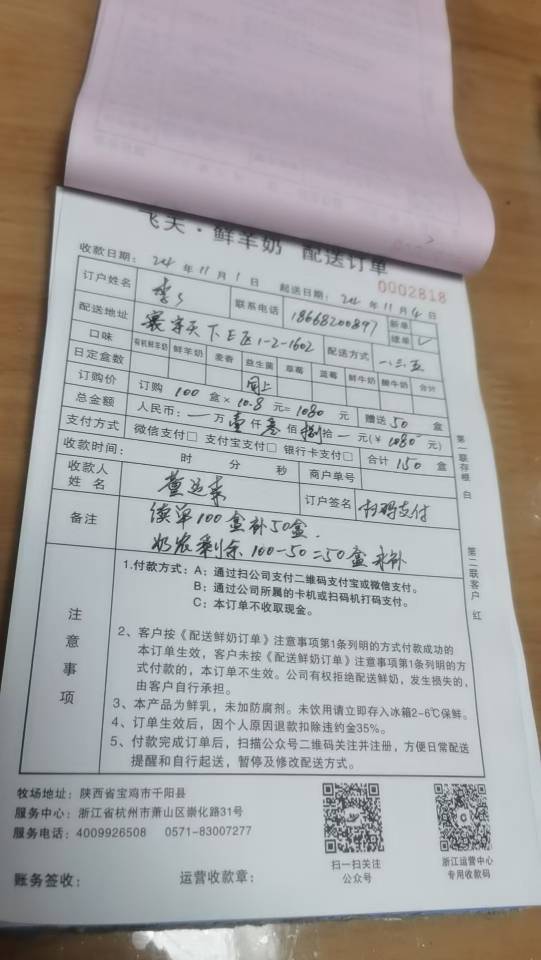 飞天·鲜羊奶 配送订单
收款日期：24 年 11 月 1 日 起送日期：24 年 11 月 4 日
0002818
订户姓名 联系电话 18668200897 新单
续单 ✓
配送地址 寰宇天下E区1-2-1602 配送方式 一、三、五
口味 有机鲜羊奶 鲜羊奶 麦香 益生菌 草莓 蓝莓 鲜牛奶 酸牛奶 合计
日定盒数 同上
订购价 订购 100 盒 × 10.8 元= 1080 元 赠送 50 盒
总金额 人民币：一 万 壹 仟 叁 佰 捌 拾 一 元(￥ 1080 元)
支付方式 微信支付□ 支付宝支付□ 银行卡支付□ 合计 150 盒
收款时间： 时 分 秒 商户单号
收款人姓名 订户签名 扫码支付
备注 续单100盒补50盒.
奶农剩余 100-50=50盒未补
注意事项
1.付款方式：A：通过扫公司支付二维码支付宝或微信支付。
B：通过公司所属的卡机或扫码机打码支付。
C：本订单不收取现金。
2、客户按《配送鲜奶订单》注意事项第1条列明的方式付款成功的
本订单生效，客户未按《配送鲜奶订单》注意事项第1条列明的方
式付款的，本订单不生效。公司有权拒绝配送鲜奶，发生损失的，
由客户自行承担。
3、本产品为鲜乳，未加防腐剂。未饮用请立即存入冰箱2-6℃保鲜。
4、订单生效后，因个人原因退款扣除违约金35%。
5、付款完成订单后，扫描公众号二维码关注并注册，方便日常配送
提醒和自行起送，暂停及修改配送方式。
第一联存根 白
第二联客户 红
牧场地址：陕西省宝鸡市千阳县
服务中心：浙江省杭州市萧山区崇化路31号
服务电话：4009926508 0571-83007277
扫一扫关注
公众号
浙江运营中心
专用收款码
账务签收： 运营收款章：